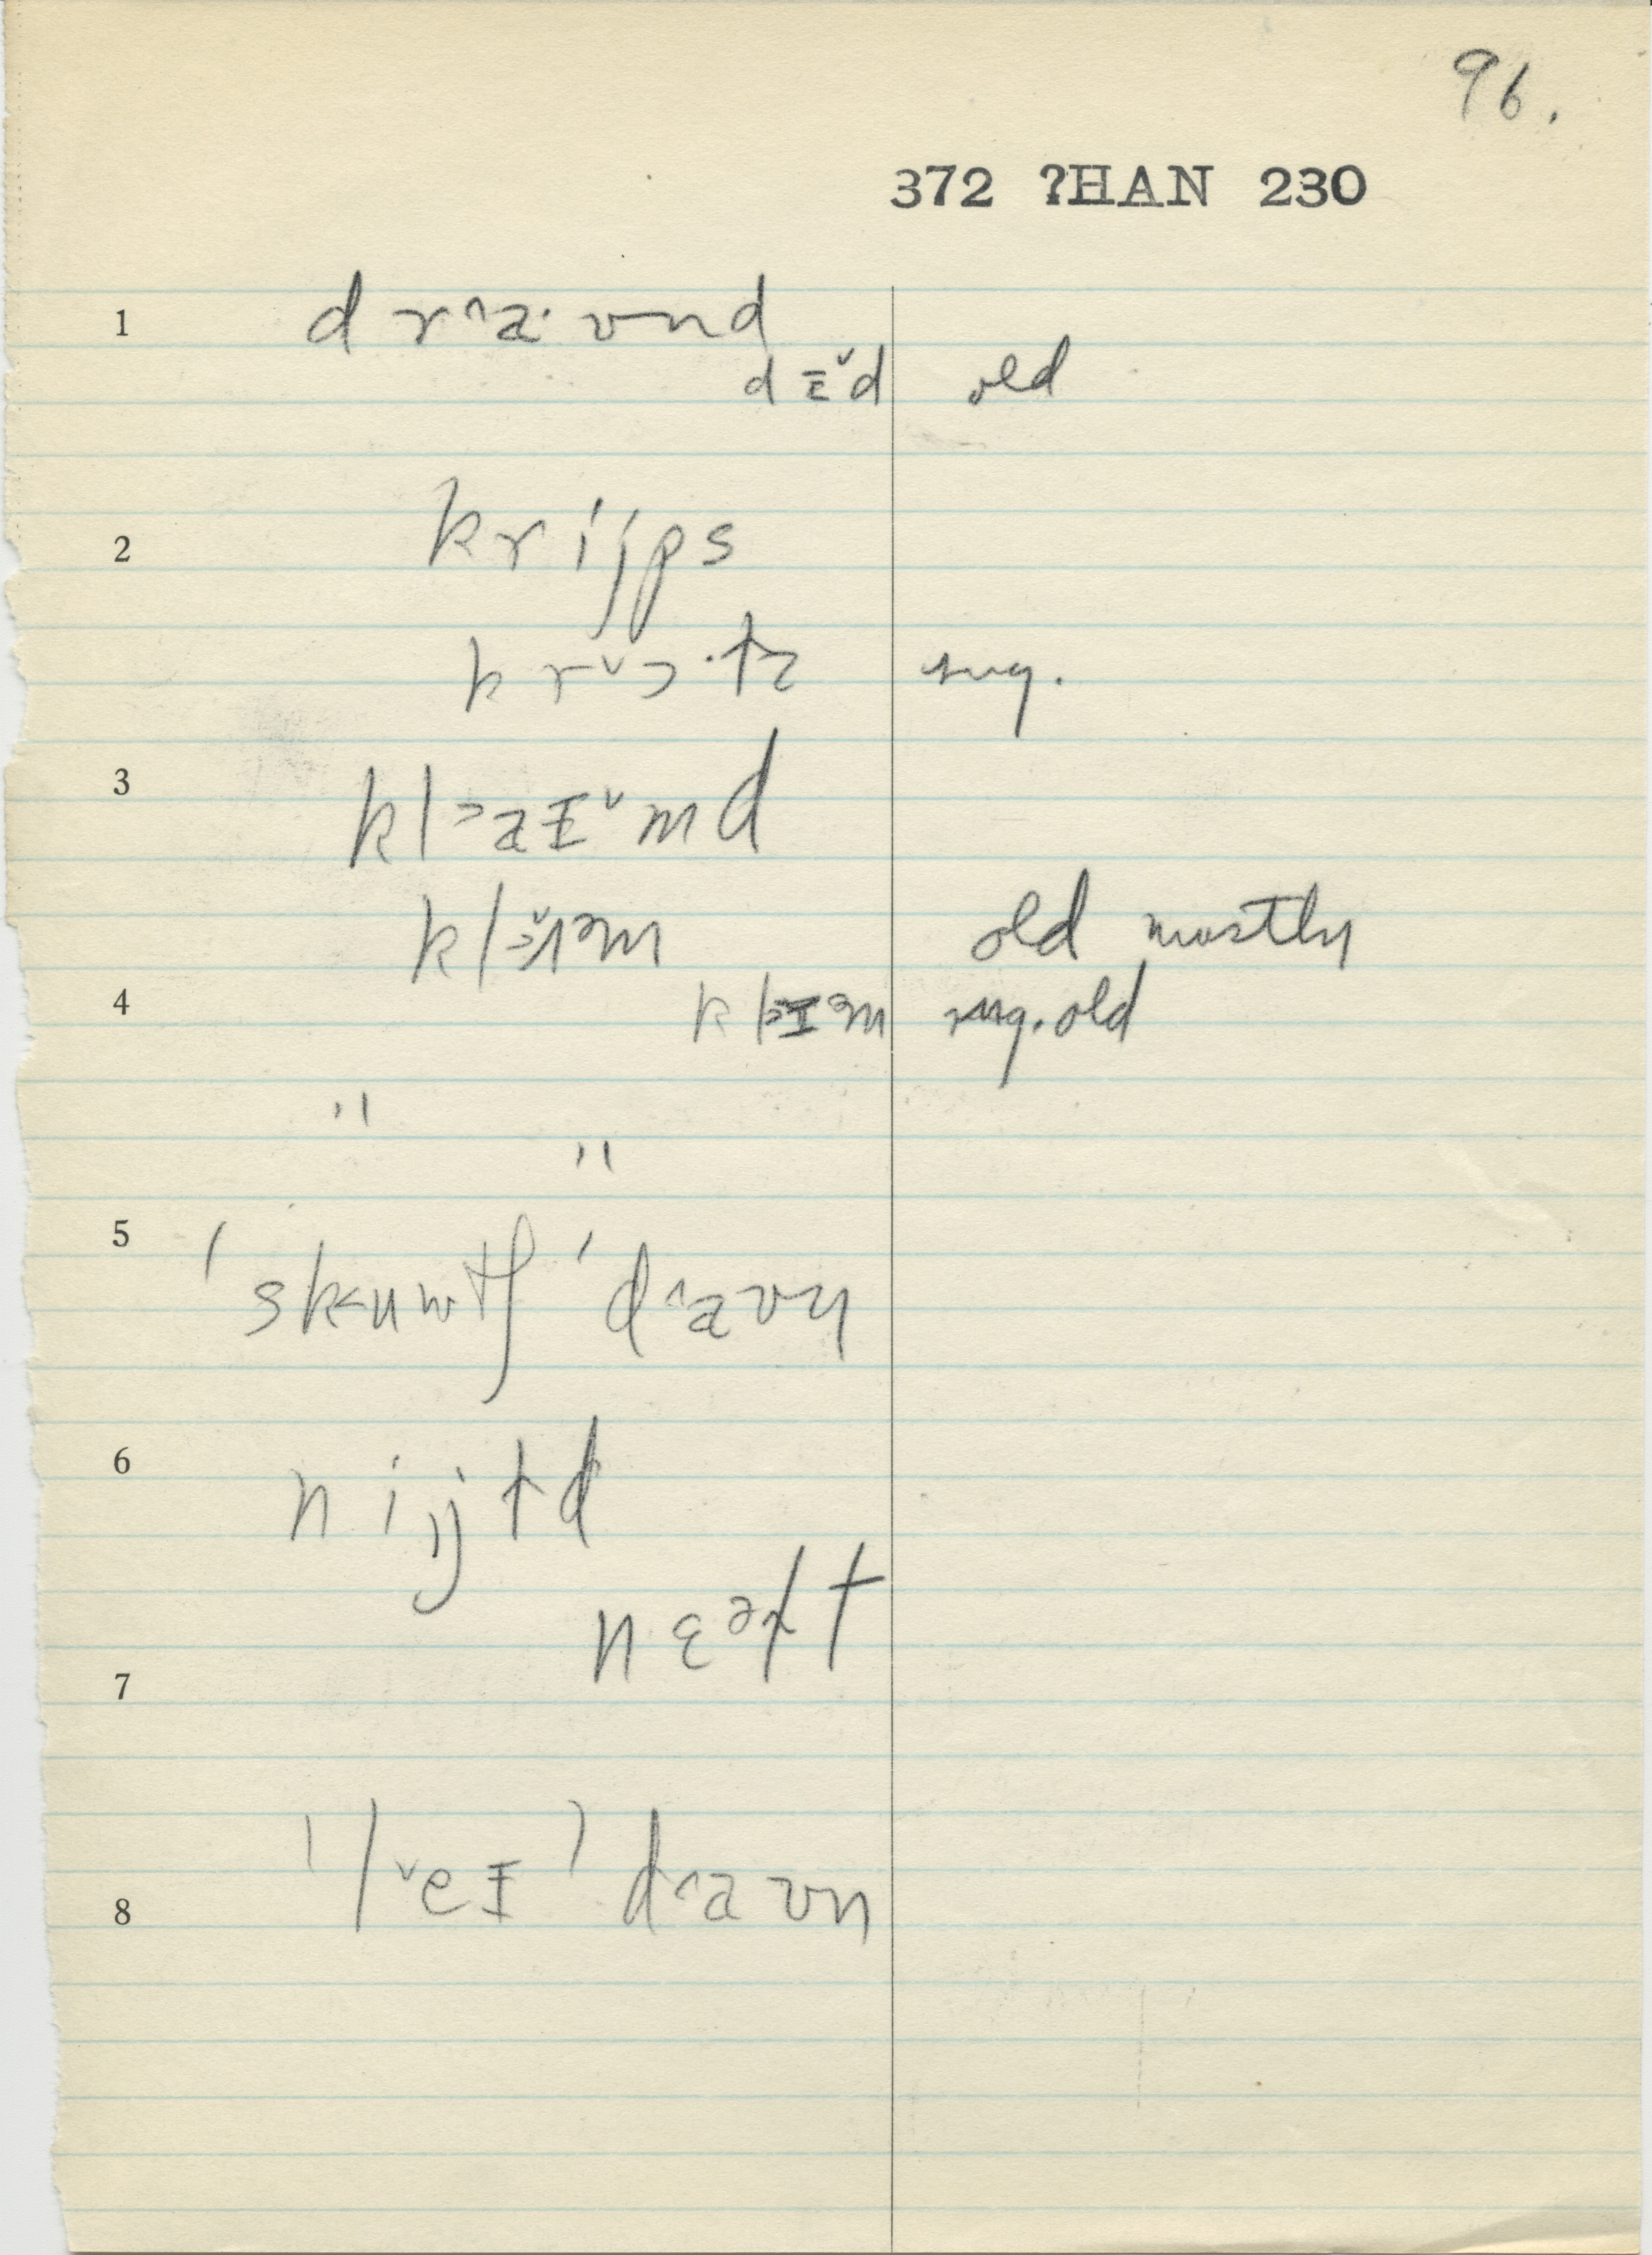 96.
372 ?HAN 230
1 d r ˄a· ʊ n d
d ɪ ˅d old
2 k r i j p s
k r ˅ɔ · t z sug.
3 k l ˃a ɪ ˅ m d
k l m old mostly
4 k l ɪ ə m sug. old
" "
5 ˈs k ˂u w tʃ ˈd ˄a ʊ n
6 n i j t d
n ɛ ə t
7
8 ˈl ˅e ɪ ˈd ˄a ʊ n